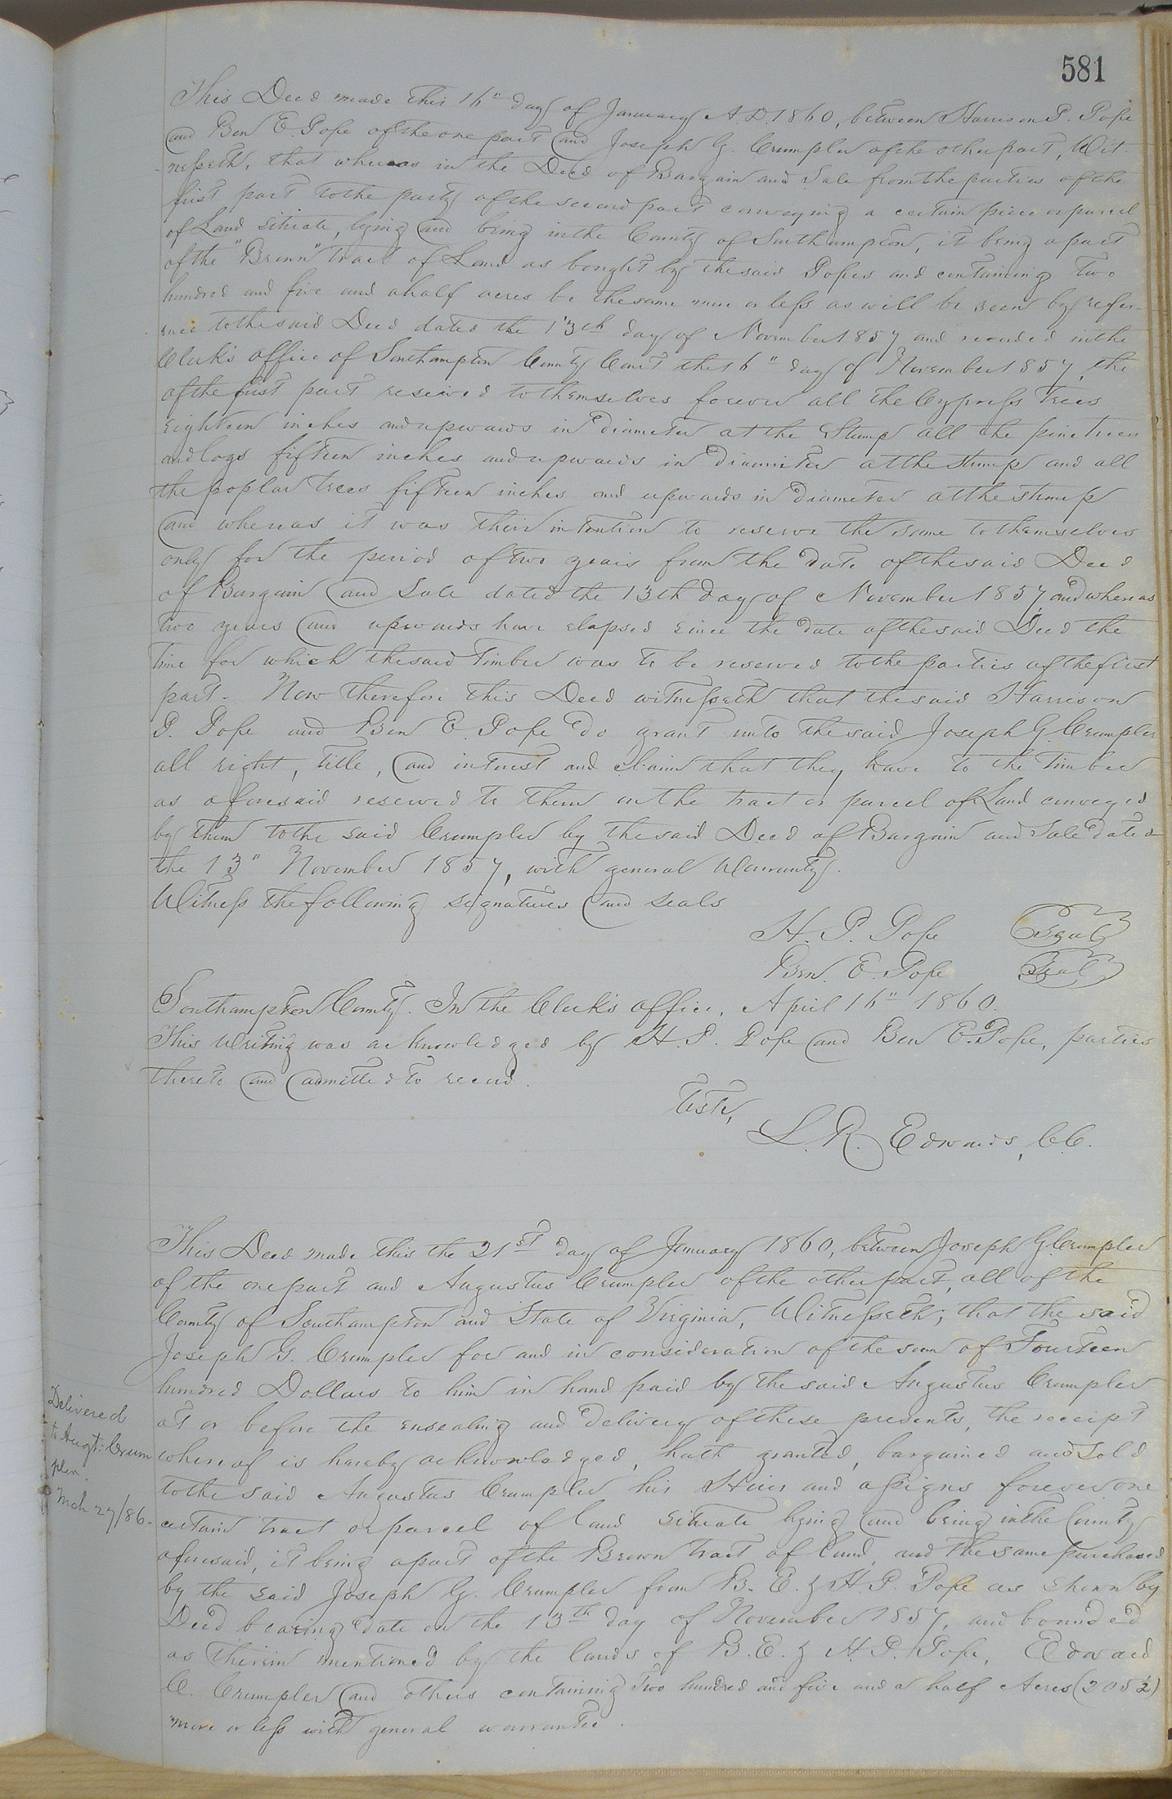 581
This Deed made this 16" day of January A D 1860, between Harrison P. Pope
and Ben E Pope of the one part and Joseph G. Crumpler of the other part, Wit-
nesseth, that whereas in the Deed of Bargain and Sale from the parties of the
first part to the party of the second part conveying a certain piece or parcel
of Land situate, lying and being in the County of Southampton, it being a part
of the "Brown" tract of Land as bought by the said Popes and containing two
hundred and five and a half acres be the same more or less as will be seen by refer-
ence to the said Deed dated the 13th day of November 1857 and recorded in the
Clerk's office of Southampton County Court the 16" day of November 1857, the
of the first part reserved to themselves forever all the Cypress trees
eighteen inches and upwards in Diameter at the Stump all the pine trees
and logs fifteen inches and upwards in Diameter at the stump and all
the poplar trees fifteen inches and upwards in Diameter at the stump
and whereas it was their intention to reserve the same to themselves
only for the period of two years from the date of the said Deed
of Bargain and Sale dated the 13th day of November 1857, and whereas
two years and upwards have elapsed since the date of the said Deed the
time for which the said timber was to be reserved to the parties of the first
part. Now therefore this Deed witnesseth that the said Harrison
P. Pope and Ben E. Pope do grant unto the said Joseph G Crumpler
all right, title, and interest and claim that they have to the timber
as aforesaid reserved to them on the tract or parcel of Land conveyed
by them to the said Crumpler by the said Deed of Bargain and Sale dated
the 13" November 1857, with general Warranty.
Witness the following signatures and seals
H. P. Pope Seal
Ben. E. Pope Seal
Southampton County. In the Clerk's office, April 16" 1860.
This writing was acknowledged by H. P. Pope and Ben E. Pope, parties
thereto and admitted to record.
Teste,
L. R. Edwards, C.C.
This Deed made this the 21st day of January 1860, between Joseph G. Crumpler
of the one part and Augustus Crumpler of the other part, all of the
County of Southampton and State of Virginia, Witnesseth; that the said
Joseph G. Crumpler for and in consideration of the sum of Fourteen
hundred Dollars to him in hand paid by the said Augustus Crumpler
at or before the ensealing and delivery of these presents, the receipt
whereof is hereby acknowledged, hath granted, bargained and sold
to the said Augustus Crumpler his Heirs and assigns forever one
certain tract or parcel of land situate lying and being in the County
aforesaid, it being a part of the Brown tract of land, and the same purchased
by the said Joseph G. Crumpler from B. E. & H. P. Pope as shewn by
Deed bearing date on the 13th day of November 1857, and bounded
as therein mentioned by the lands of B. E. & H. P. Pope, Edward
C. Crumpler and others containing Two hundred and five and a half Acres (205½)
more or less with general warrantee.
Delivered
to Augt: Crum
pler.
Mch 27/86.